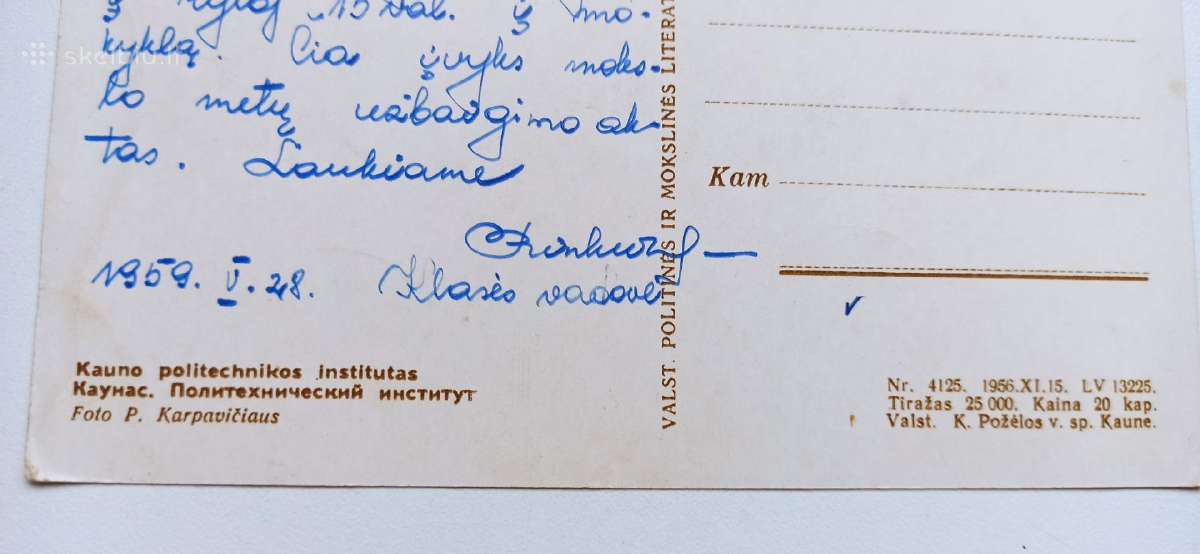 15 val. į mo-
kyklą. Čia įvyks moks-
lo metų užbaigimo ak-
tas. Laukiame
1959. V. 28. Klasės vadovė
Kauno politechnikos institutas
Каунас. Политехнический институт
Foto P. Karpavičiaus
VALST. POLITINĖS IR MOKSLINĖS LITERAT
Kam
Nr. 4125. 1956.XI.15. LV 13225.
Tiražas 25 000. Kaina 20 kap.
Valst. K. Požėlos v. sp. Kaune.